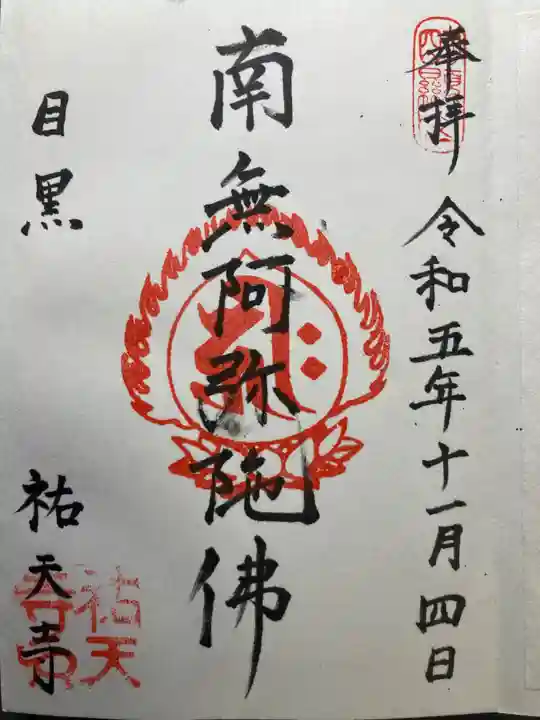 奉拝 令和五年十一月四日
南無阿弥陀佛
目黒 祐天寺
祐天寺